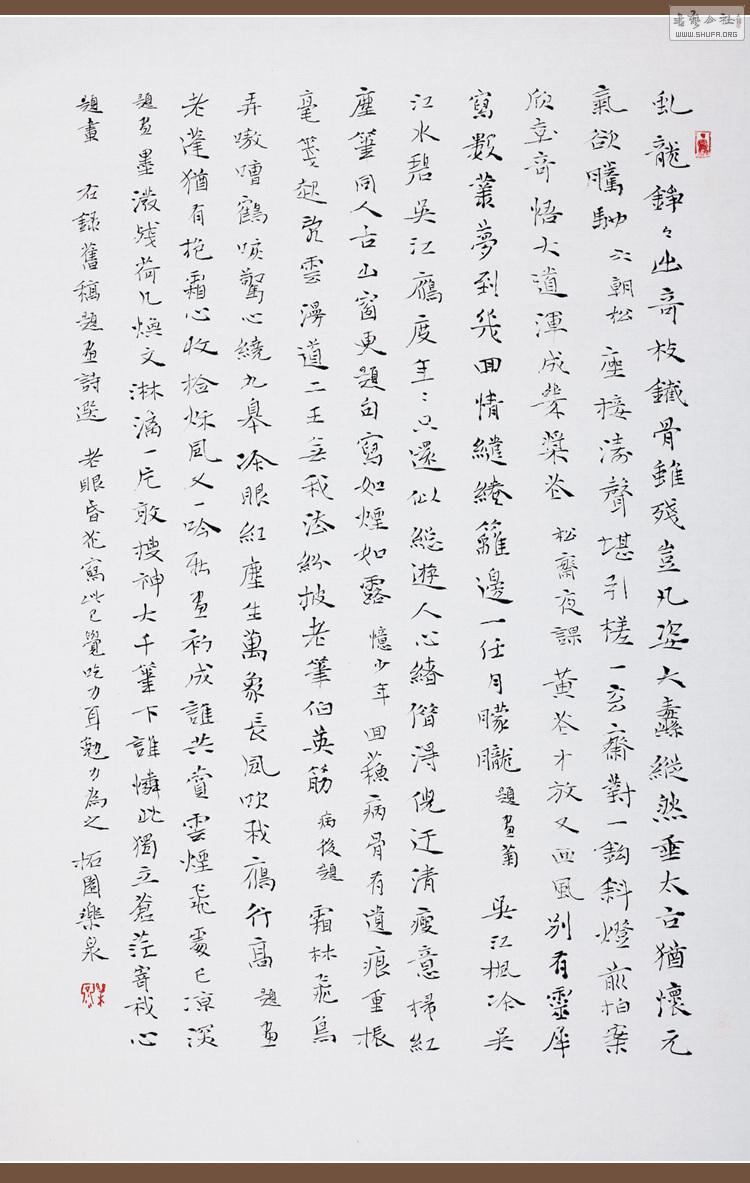 虬龍錚々出奇枝鐵骨雖殘豈凡姿大壑縱然垂太古猶懷元
氣欲騰馳 六朝松 座接濤聲堪引槎一玄齋對一鈎斜燈前拍案
欣忽奇悟大道渾成筆槳花 松齋夜課 黃花才放又西風別有靈犀
寫數叢夢到幾回情繾綣籬邊一任月朦朧 題画菊 吳江楓冷吳
江水碧吳江鴈度年々只還似總遊人心緒僭得倪迂清瘦意掃紅
塵箑同人古山窗更題句寫如煙如露 憶少年 回蘇病骨有遺痕重振
毫箋起玩雲漫道二王無我法紛披老筆伯英筋 病後題 霜林飛鳥
弄嗷嘈鶴唳驚心繞九皋冷眼紅塵生萬象長風吹我鴈行高 題画
老蓬猶有抱霜心收拾秋風又一吟聊画初成誰共賞雲煙飛處已凉深
題画 墨潑殘荷几煥文淋漓一片敢搜神大千筆下誰憐此獨立蒼茫寄我心
題畫 右錄舊稿題画詩選 老眼昏花寫此已覺吃力耳勉力為之 柘園樂泉
書藝公社
WWW.SHUFA.ORG